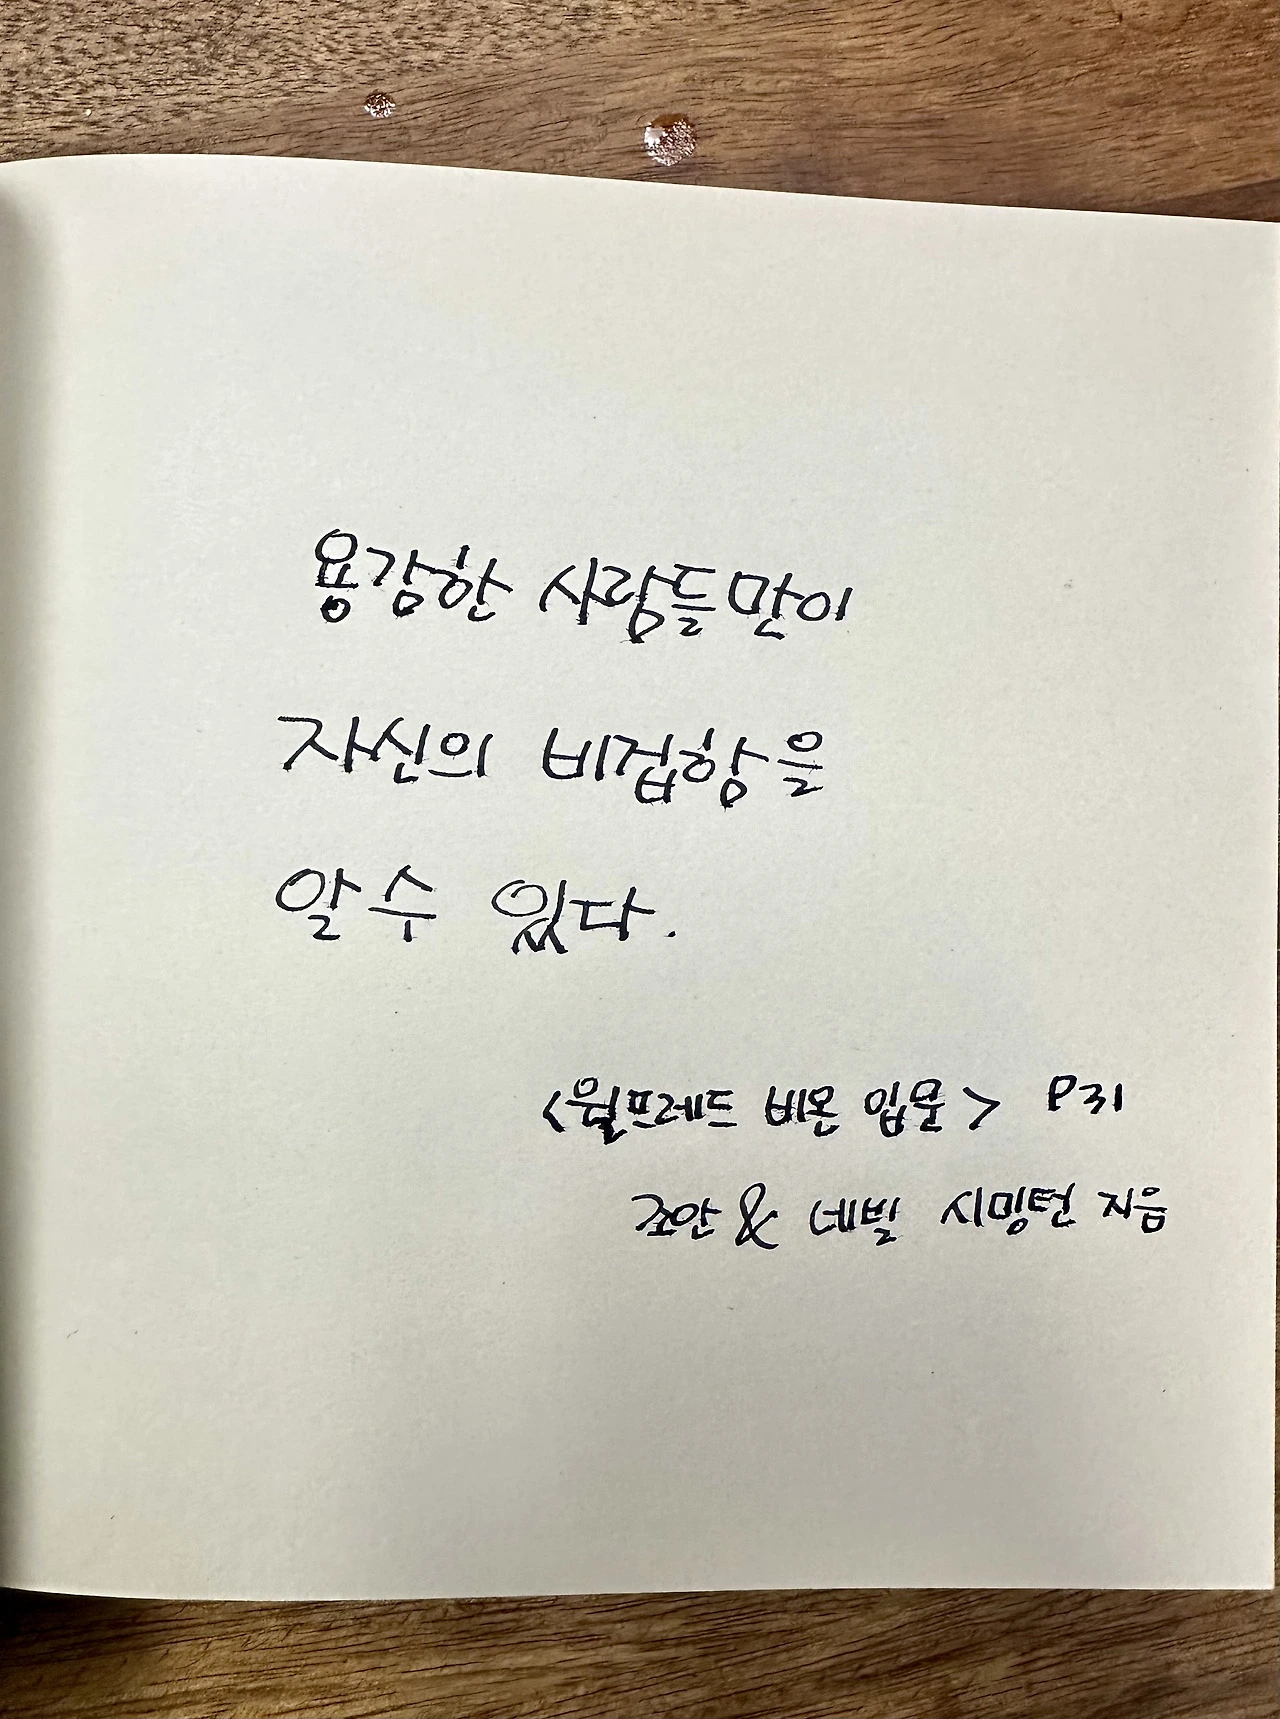 용감한 사람들만이
자신의 비겁함을
알 수 있다.
<윌프레드 비온 입문> P31
조안 & 네빌 시밍턴 지음